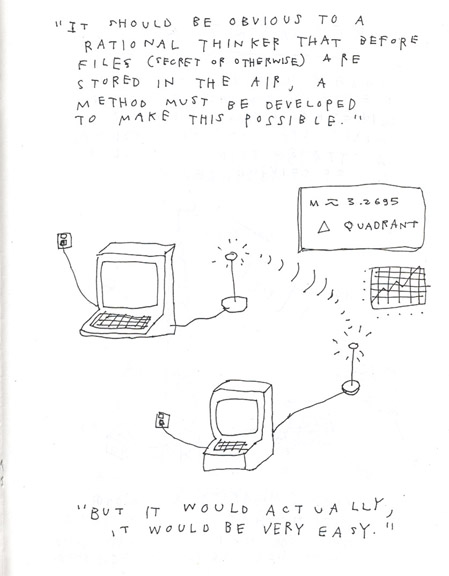 "IT SHOULD BE OBVIOUS TO A
RATIONAL THINKER THAT BEFORE
FILES (SECRET OR OTHERWISE) ARE
STORED IN THE AIR, A
METHOD MUST BE DEVELOPED
TO MAKE THIS POSSIBLE."
M ≂ 3.2695
△ QUADRANT
"BUT IT WOULD ACTUALLY,
IT WOULD BE VERY EASY."